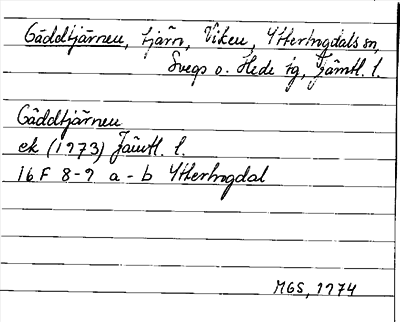 Gäddtjärnen, tjärn, Viken, Ytterhogdals sn,
Svegs o. Hede tg, Jämtl. l.
Gäddtjärnen
ek (1973) Jämtl. l.
16F 8-9 a-b Ytterhogdal
MGS, 1974